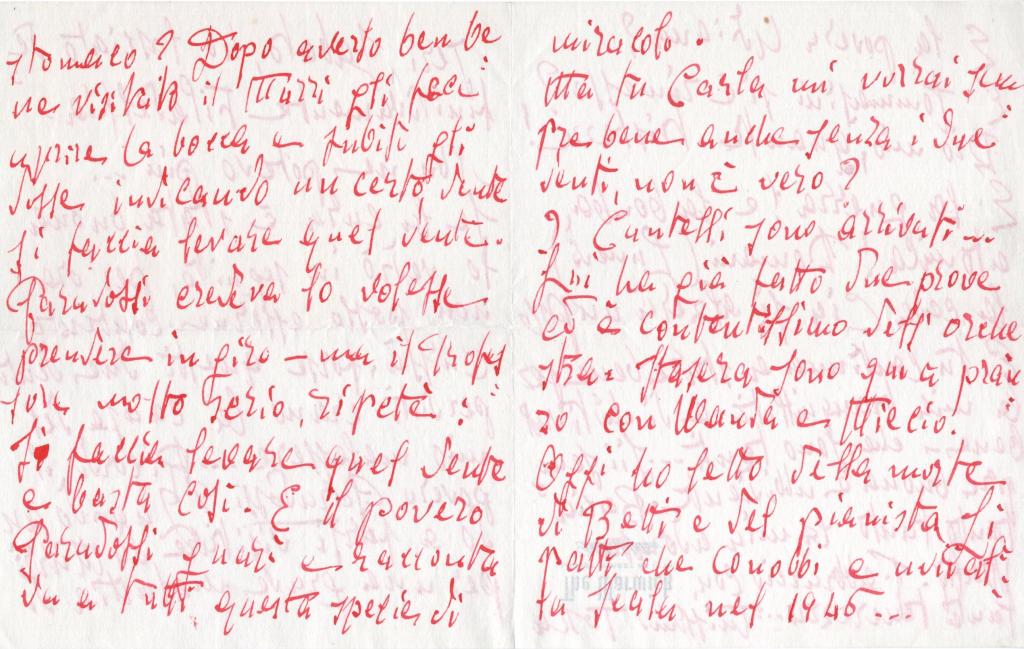 stomaco? Dopo averlo ben be
ne visitato il Murri gli fece
aprire la bocca e subito gli
disse indicando un certo dente
si faccia levare quel dente.
Paradossi credeva lo volesse
prendere in giro – ma il Profes
sore molto serio, ripetè:
Si faccia levare quel dente
e basta così. E il povero
Paradossi guarì e racconta
va a tutti questa specie di
miracolo.
Ma tu Carla mi vorrai sem
pre bene anche senza i due
denti, non è vero?
I Cantelli sono arrivati...
Lui ha già fatto due prove
ed è contentissimo dell'orche
stra. Stasera sono qui a pran
zo con Wanda e Miecio.
Oggi ho letto della morte
di Betti e del pianista Li
patti che conobbi e udii
la Scala nel 1946....
The Warwick